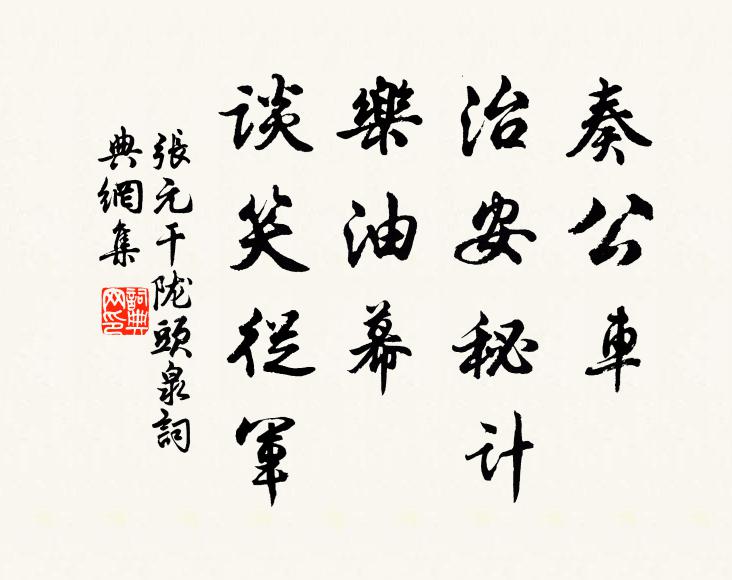 奏公車
治安秘计
樂油幕
谈笑從軍
張元干陇頭泉詞
典網集
詞典
网印